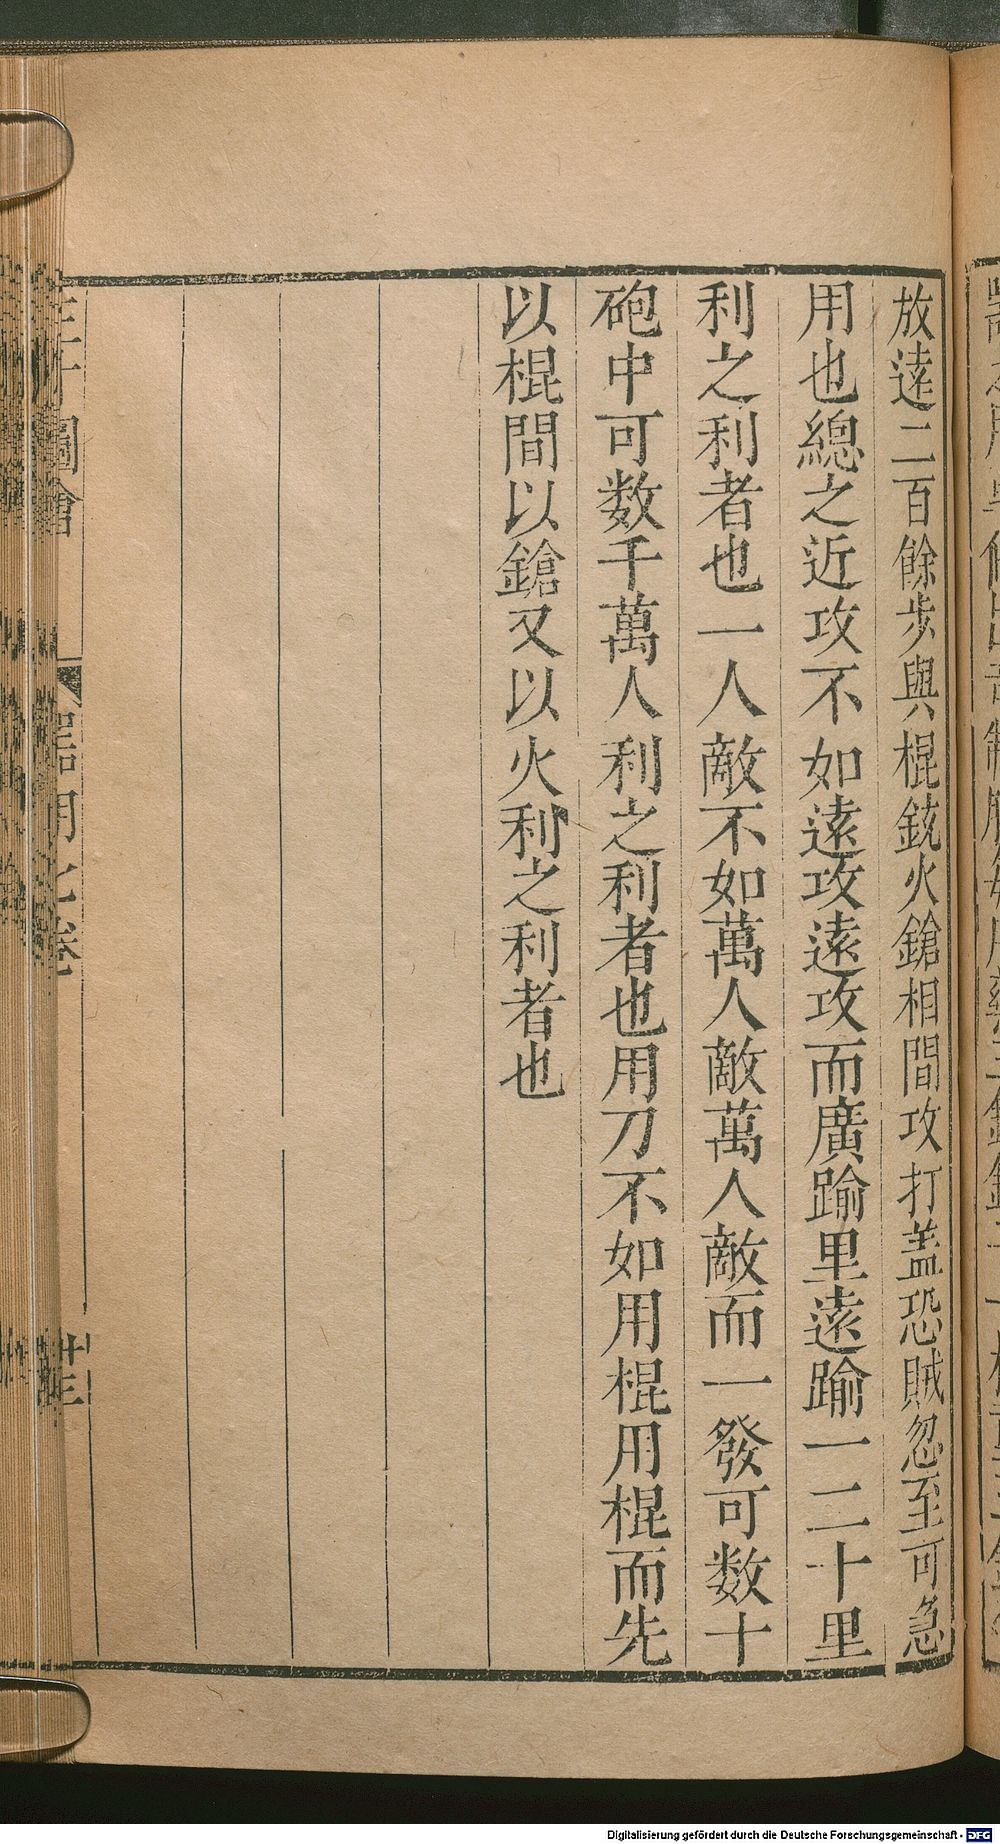 放遠二百餘步與棍銃火鎗相間攻打盖恐賊忽至可急
用也總之近攻不如遠攻遠攻而廣踰里遠踰一二十里
利之利者也一人敵不如萬人敵萬人敵而一發可数十
砲中可数千萬人利之利者也用刀不如用棍用棍而先
以棍間以鎗又以火利之利者也
圖會
卷
卄三
Digitalisierung gefördert durch die Deutsche Forschungsgemeinschaft - DFG